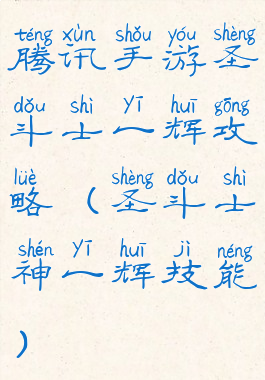 téng xùn shǒu yóu shèng
腾讯手游圣
dǒu shì yī huī gōng
斗士一辉攻
lüè shèng dǒu shì
略（圣斗士
shén yī huī jì néng
神一辉技能
）